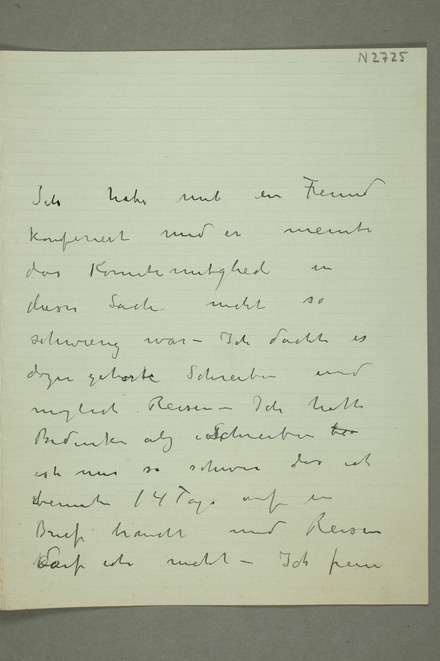 N2725
Ich habe mit en Freund
konferiert und er meinte
das Komitemitglied in
dieser Sache nicht so
schwierig war – Ich dachte es
dazu gehorte Schreiben und
möglich Reisen – Ich hatte
Bedenken als Schreiben
ist mir so schwer das ich
beinah 14 Tage auf en
Brief brauche und Reisen
darf ich nicht – Ich freue